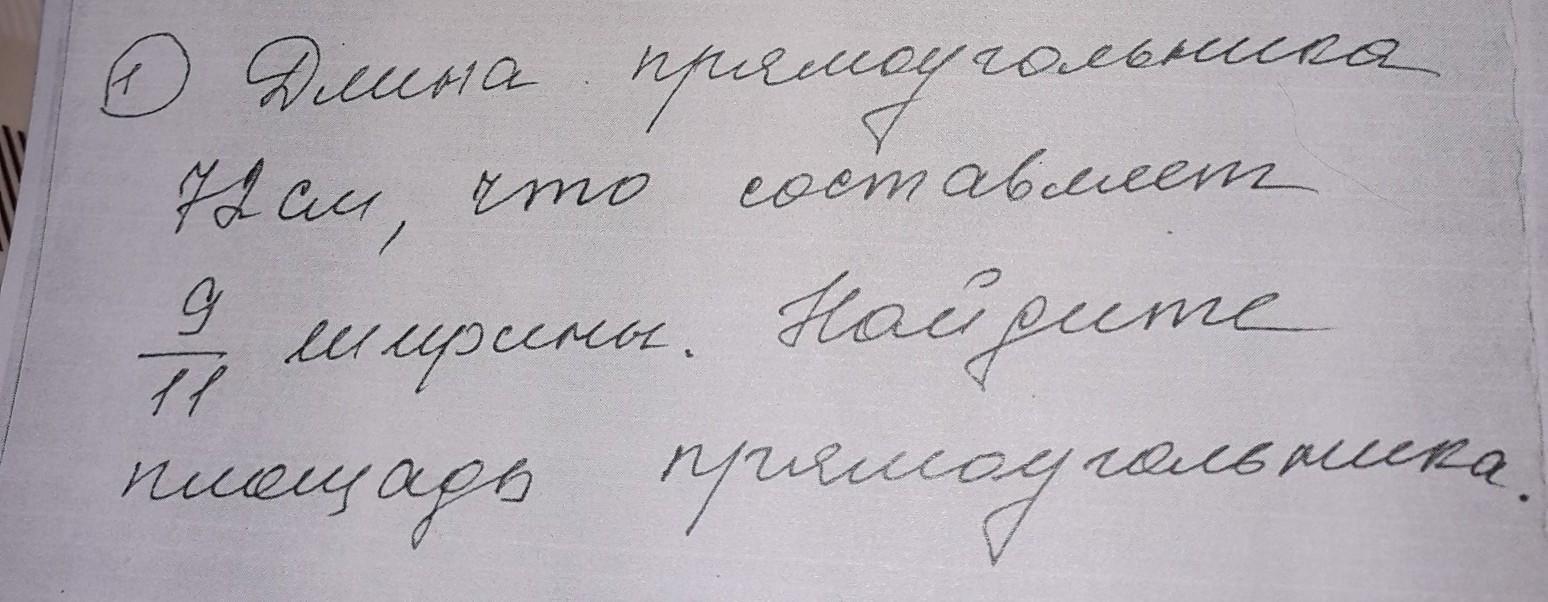 ① Длина прямоугольника
72 см, что составляет
9/11 ширины. Найдите
площадь прямоугольника.